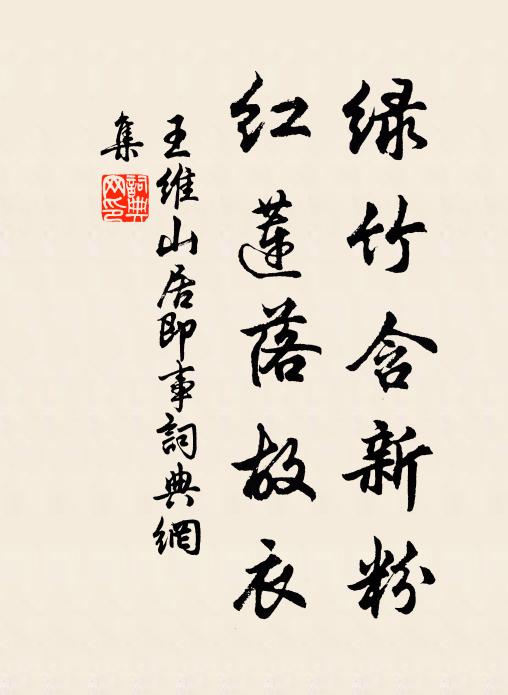 绿竹含新粉
红莲落故衣
王维山居即事詞典網
集
詞典
网印